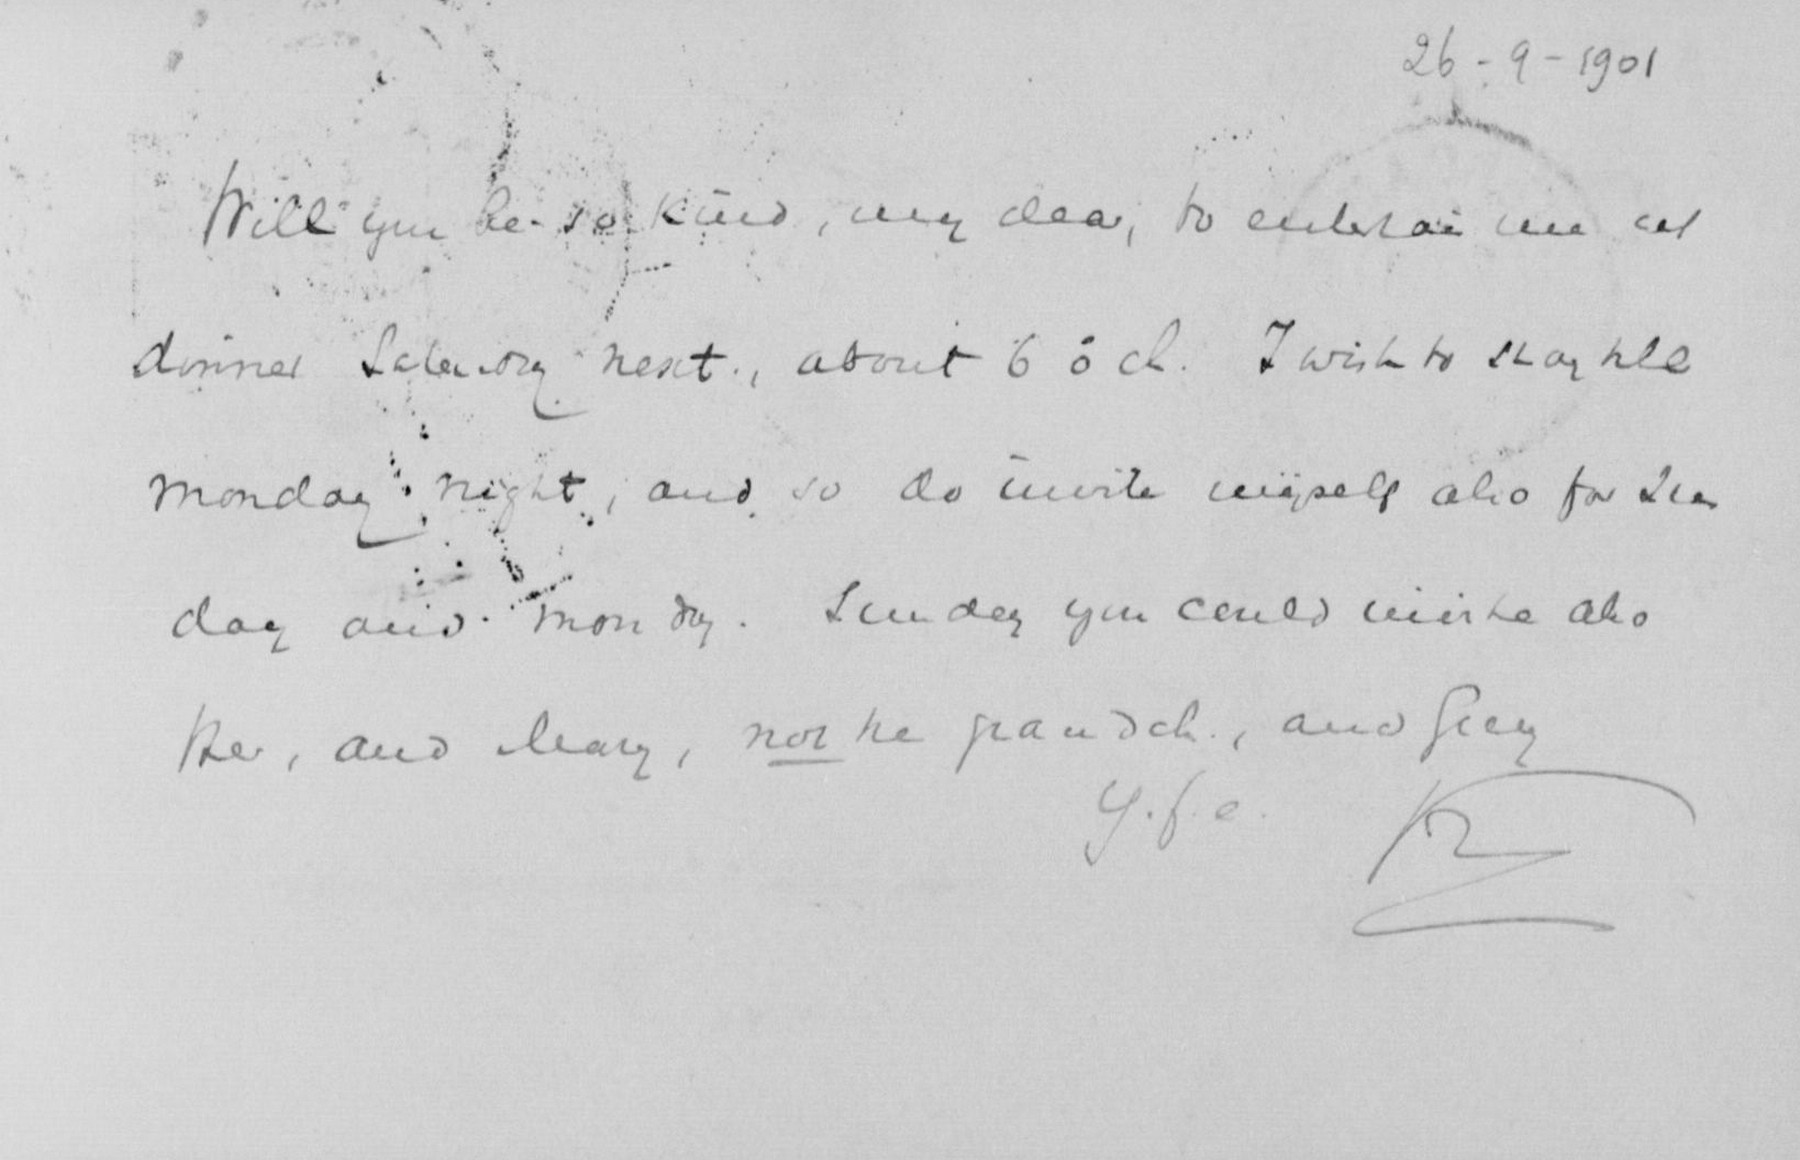 26-9-1901
Will you be so kind, my dear, to entertain me at
dinner Saturday next., about 6 o'cl. I wish to stay till
monday night, and so do invite myself also for Sun
day and monday. Sunday you could invite also
and Mary, not the grandch., and
Y. f. e.